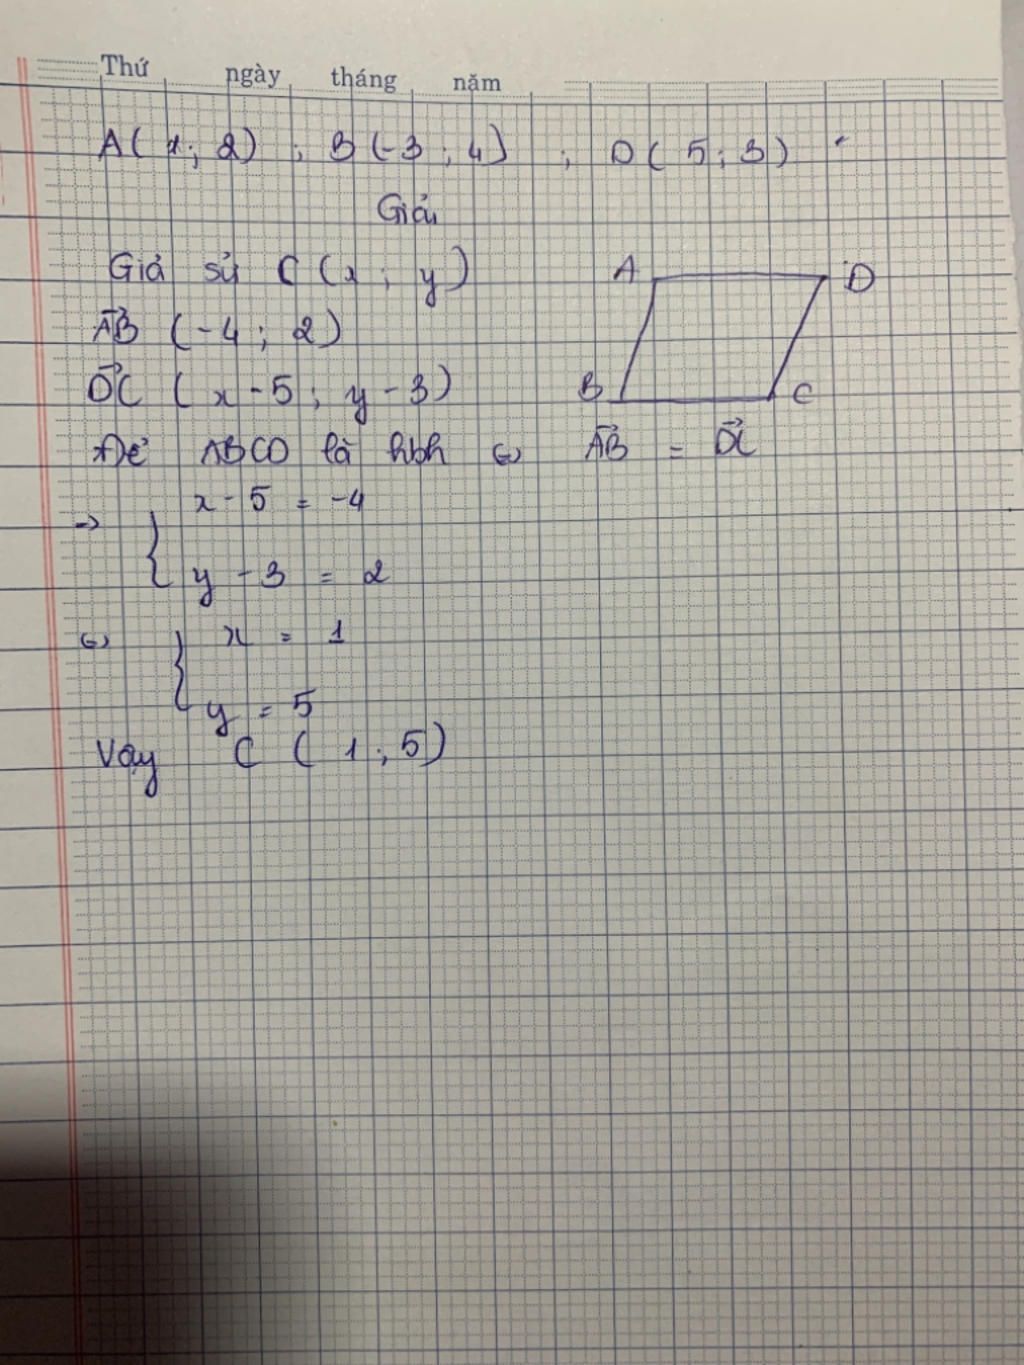 Thứ ngày tháng năm
A(1; 2) ; B(-3; 4) ; D(5; 3)
Giải
Giả sử C(x; y)
A D
AB⃗ (-4; 2)
DC⃗ (x-5; y-3)
B C
Để ABCD là hbh ⇔ AB⃗ = DC⃗
→ { x - 5 = -4
y - 3 = 2
⇔ { x = 1
y = 5
Vậy C (1; 5)